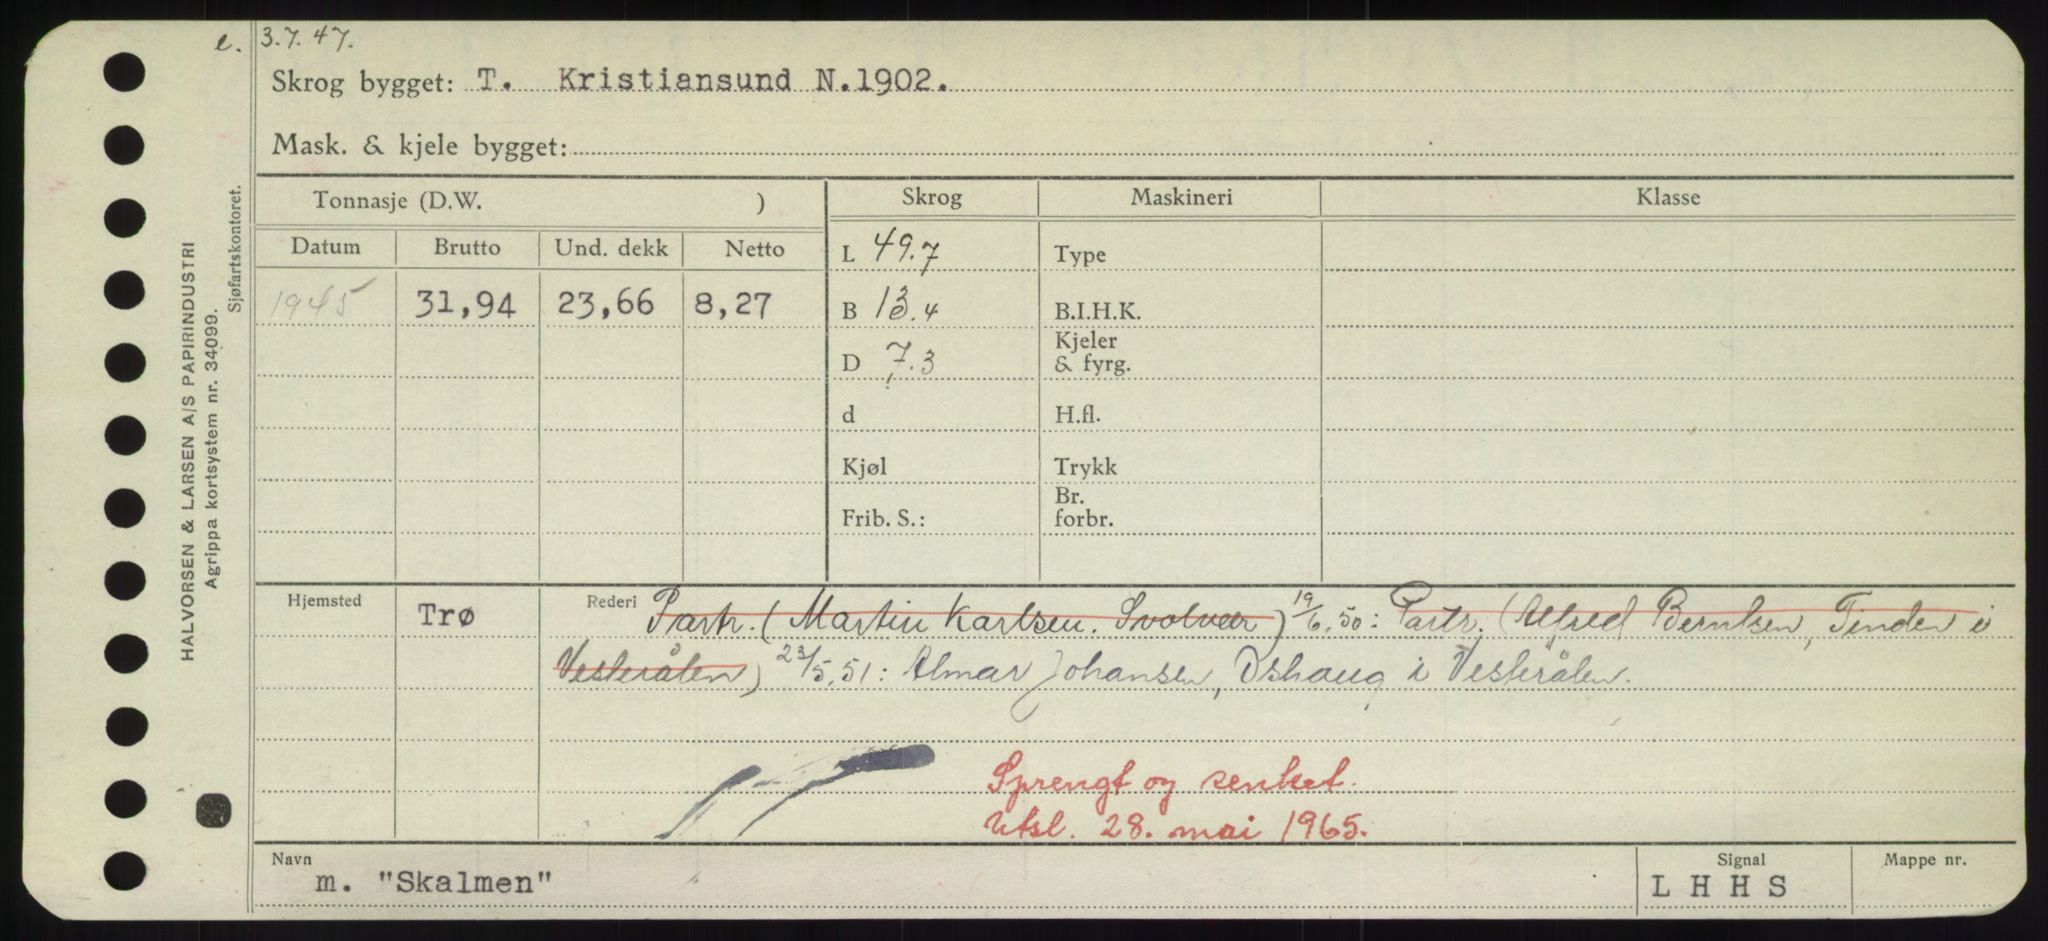 e. 3.7.47.
Skrog bygget: T. Kristiansund N.1902.
Mask. & kjele bygget:
Tonnasje (D.W. )
Skrog
Maskineri
Klasse
Datum Brutto Und. dekk Netto
1945 31,94 23,66 8,27
L 49.7
B 13.4
D 7.3
d
Kjøl
Frib. S.:
Type
B.I.H.K.
Kjeler
& fyrg.
H.fl.
Trykk
Br.
forbr.
Hjemsted Trø
Rederi Partr. (Martin Karlsen. Svolvær) 19/6.50: Partr. (Alfred Berntsen, Tinden i
Vesterålen) 23/5.51: Almar Johansen, Oshaug i Vesterålen.
Sprengt og senket.
Utsl. 28. mai 1965.
Navn
m. "Skalmen"
Signal
L H H S
Mappe nr.
HALVORSEN & LARSEN A/S PAPIRINDUSTRI
Agrippa kortsystem nr. 34099.
Sjøfartskontoret.